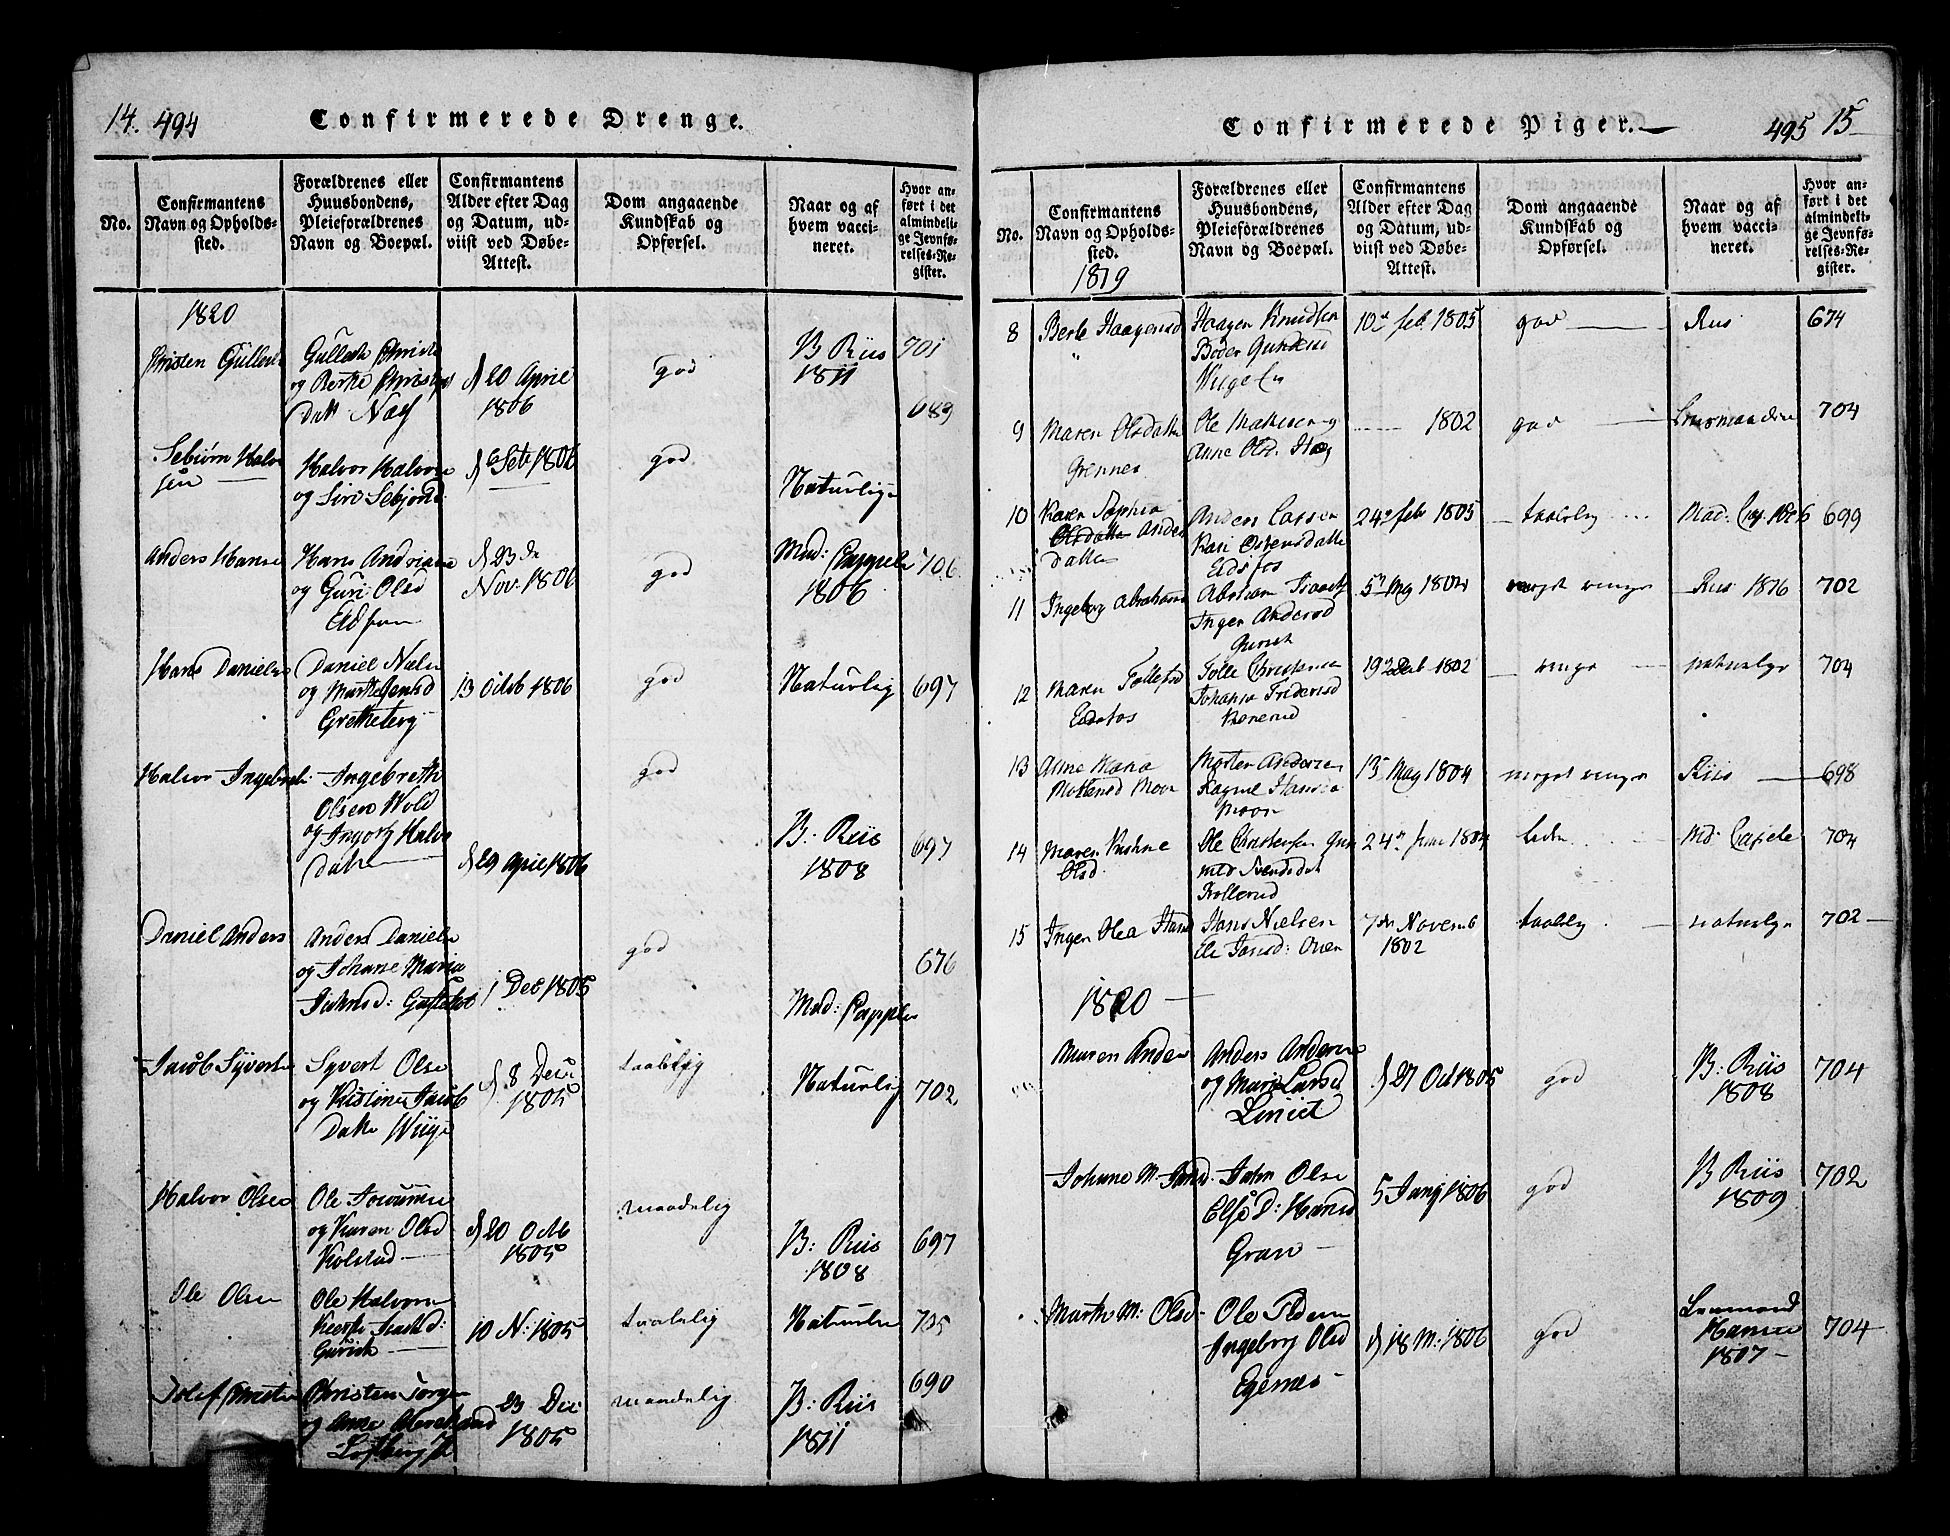 14. 494
Confirmerede Drenge.
No.
Confirmantens
Navn og Opholds-
sted.
Forældrenes eller
Huusbondens,
Pleieforældrenes
Navn og Boepæl.
Confirmantens
Alder efter Dag
og Datum, ud-
viist ved Døbe-
Attest.
Dom angaaende
Kundskab og
Opførsel.
Naar og af
hvem vacci-
neret.
Hvor an-
ført i det
almindeli-
ge Jevnfø-
relses-Re-
gister.
1820
Gulleck Christe
og Berthe Christens
Datt Næss
d 20 April
1806
god
B Riis
1811
701
689
Halvor Halvorse
og Siri Sebjørnsd
d 6 Sete 1806
god
Naturlig
Anders Hanse
Hans Andriase
og Guri Olsd
d 23 de
Nov: 1806
god
Mad: Cappele
1806
706
Hans Danielse
Daniel Nielse
og Marthe Jensd
Gretteberg
13 Octb 1806
god
Naturlig
697
Halvor Ingebreth
Ingebreth
Olsen Wold
og Ingborg Halvo
Datte
d 29 April 1806
god
B: Riis
1808
697
Daniel Anders
Anders Danielse
og Johane Maria
1 Dec 1805
god
Mad: Capple
676
Jacob Syvertse
Syvert Olse
og Kistine Jacob
Datte Wiige
d 8 Dec
1805
taalelig
Naturlig
702
Halvor Olse
Ole
og Karen Olsd
Kolstad
d 20 Octb
1805
maadelig
B: Riis
1808
697
Ole Olsen
Ole Halvorse
10 N: 1805
taalelig
Naturlig
705
Christen
og Anne
23 Dec
1805
maadelig
B: Riis
1811
690
Confirmerede Piger.
495 15
No.
Confirmantens
Navn og Opholds-
sted.
1819
Forældrenes eller
Huusbondens,
Pleieforældrenes
Navn og Boepæl.
Confirmantens
Alder efter Dag
og Datum, ud-
viist ved Døbe-
Attest.
Dom angaaende
Kundskab og
Opførsel.
Naar og af
hvem vacci-
neret.
Hvor an-
ført i det
almindeli-
ge Jevnfø-
relses-Re-
gister.
8 Berte Haagensd
Haagen Knudsen
10de feb. 1805
god
Riis
674
9 Maren Olsdatte
Grennes
Ole Mathisen og
Anne Olsd. Hæg
1802
god
704
10 Karen Sophia
Olsdatte Anders
Datter
Anders Larsen
Kari Ostensdatte
Eidsfos
24de feb 1805
taalelig
Mad: Cap
699
11 Ingeborg Abrahams
Abraham Isaachs
Inger Andersd
5te May 1804
meget ringe
Riis 1816
702
12 Maren Tollefsd
Eidsfos
Tolle Christensen
19de 1802
ringe
naturlige
704
13 Anne Maria
Mortensd Moen
Morten Andersen
Moen
15 May 1804
meget ringe
Riis
698
14 Maren
Olsd.
Ole Christensen
Kollerud
24de Juni 1804
Md: Capele
704
15 Ingen Olea Hansd
Hans Nielsen
7de Novemb
1802
taalelig
naturlige
702
1820
Maren Anders
Anders Anderse
og Mari Larsd
d 27 Oct 1805
god
B: Riis
1808
704
Johane M. Jansd.
Jahn Olse
Else D: Hansd
Gran
5 Juny 1806
god
B Riis
1809
702
Marthe M: Olsd
Ole
Ingeborg Olsd
Egernes
d 18 M: 1806
god
Hansen
1807
704